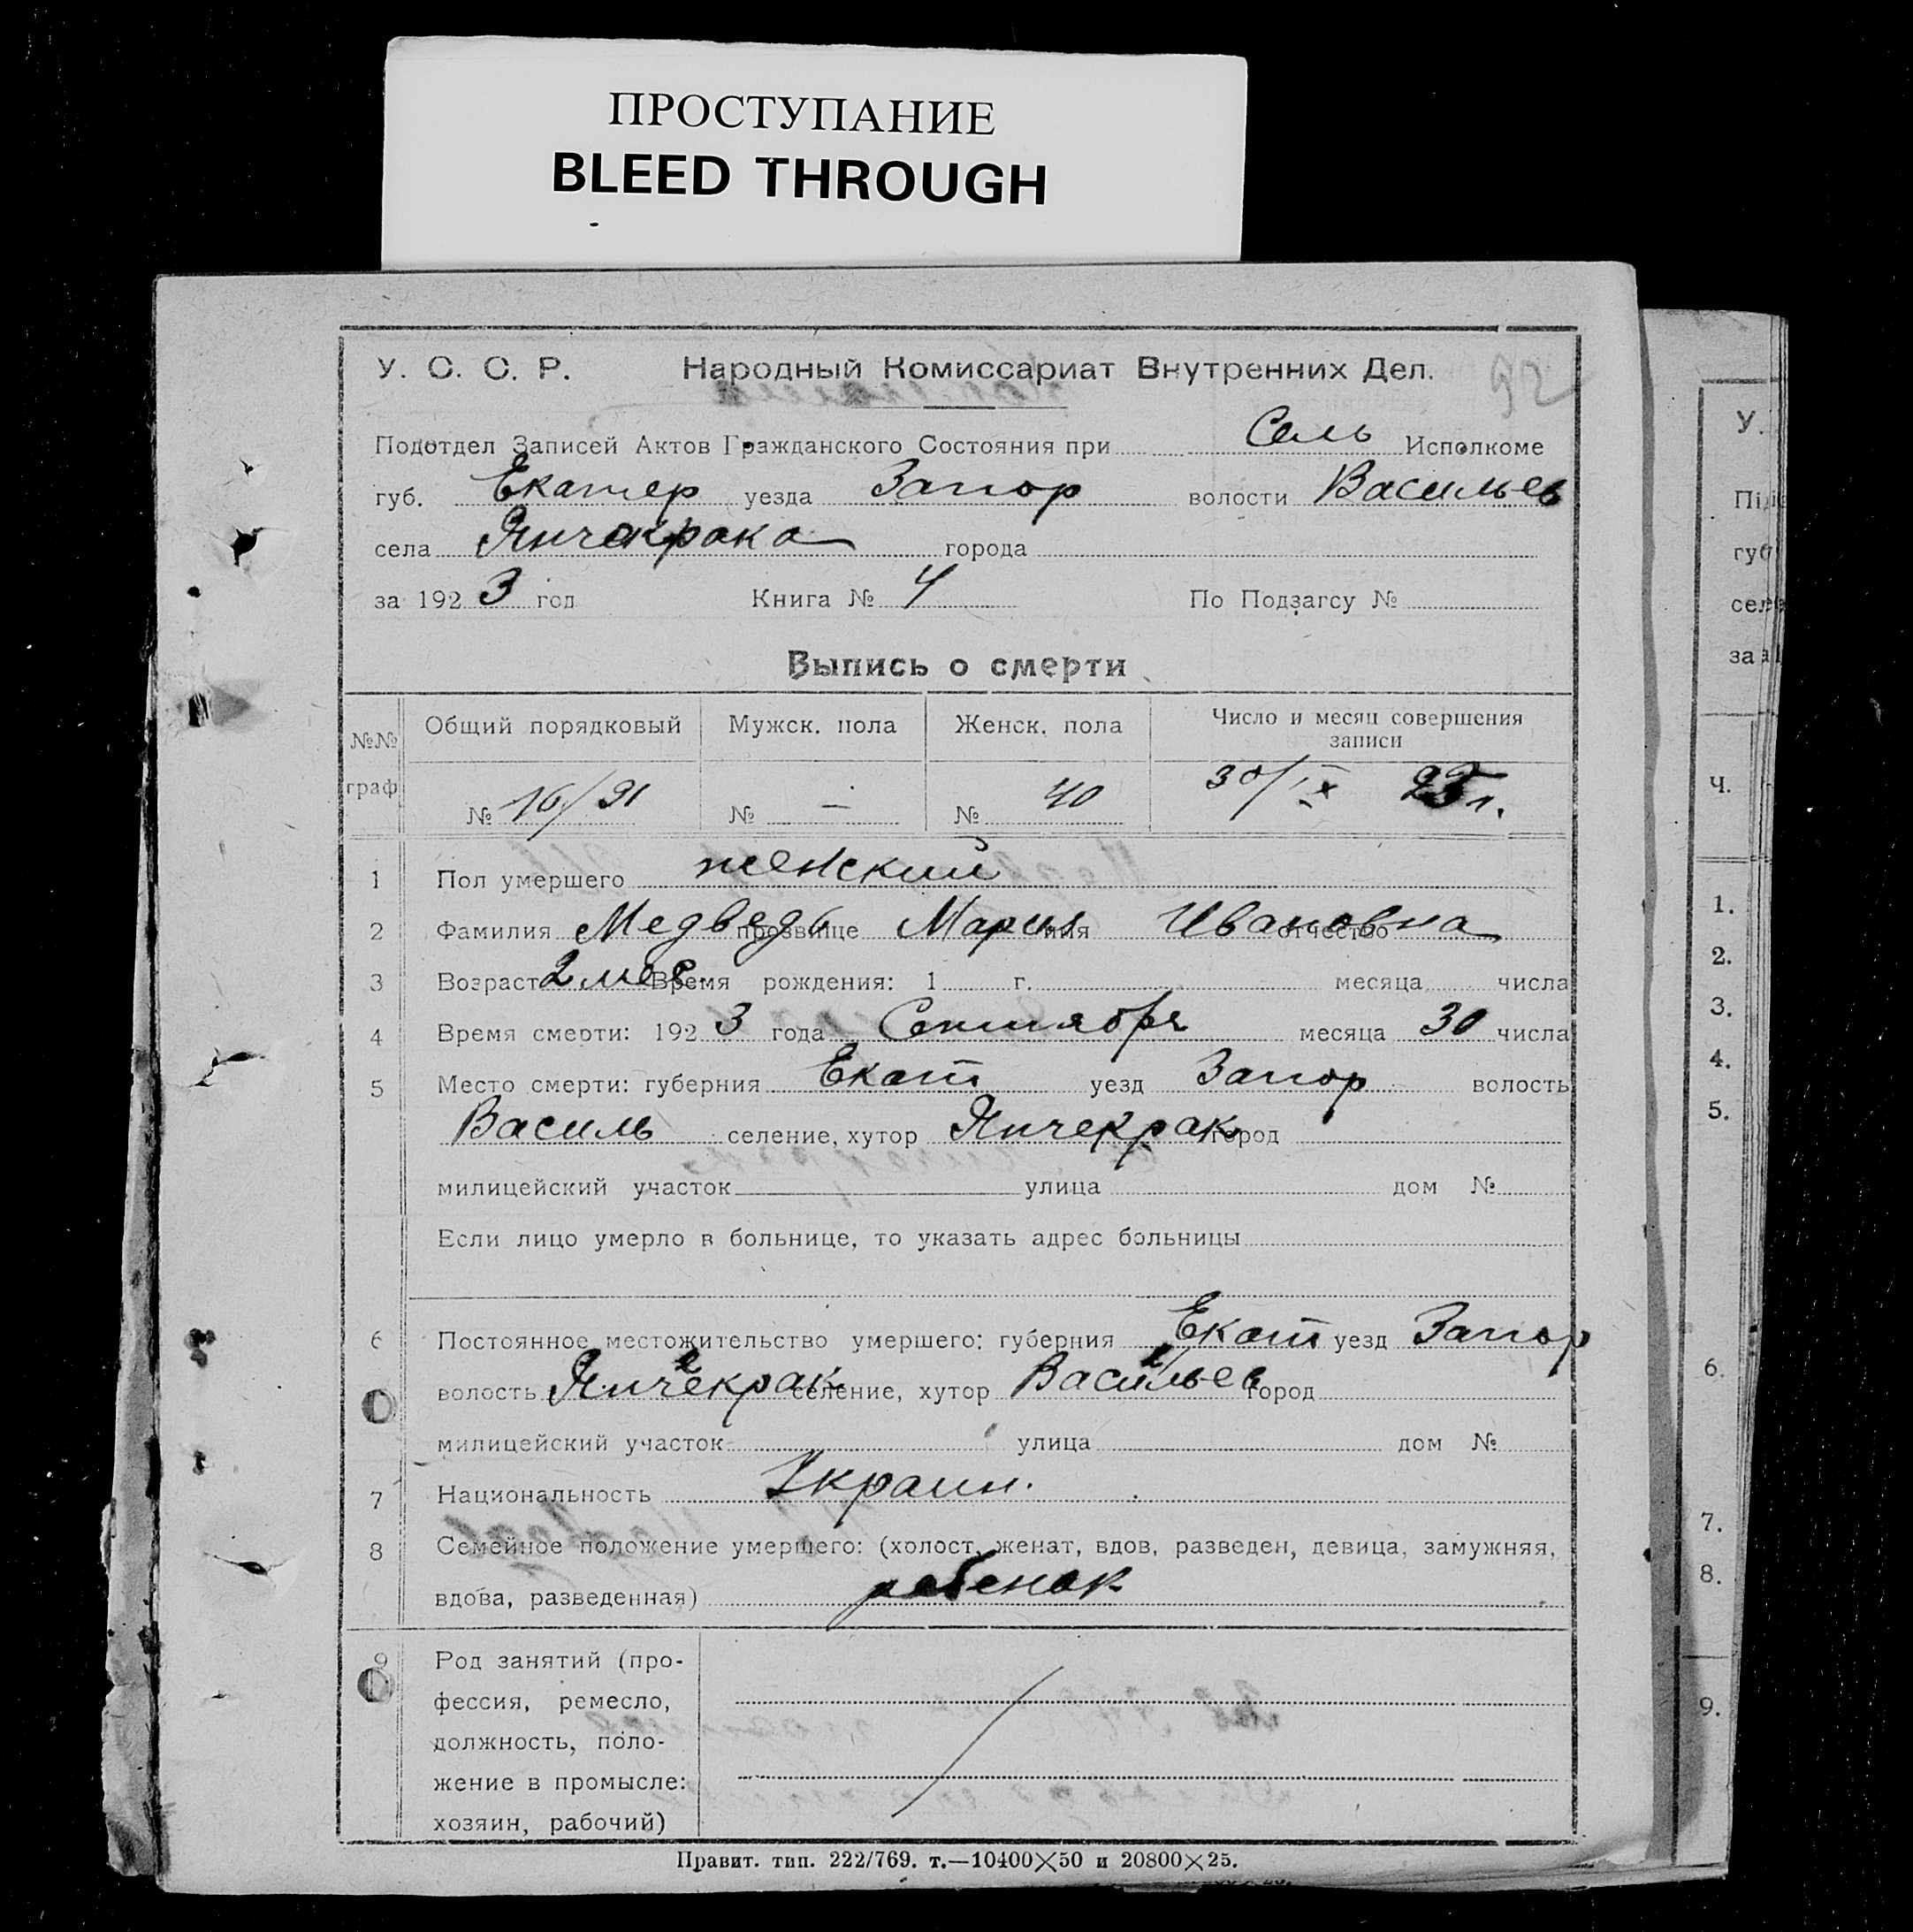 ПРОСТУПАНИЕ
BLEED THROUGH
У. С. С. Р. Народный Комиссариат Внутренних Дел. 92
Подотдел Записей Актов Гражданского Состояния при Сель Исполкоме
губ. Екатер уезда Запор волости Васильев
села Янчекрака города
за 1923 год Книга № 4 По Подзагсу №
Выпись о смерти
№№ граф Общий порядковый Мужск. пола Женск. пола Число и месяц совершения записи
№ 16/91 № — № 40 30/IX 23 г.
1 Пол умершего женский
2 Фамилия Медведь прозвище Мария имя Ивановна отчество
3 Возраст 2 мес. Время рождения: 1 г. месяца числа
4 Время смерти: 1923 года Сентября месяца 30 числа
5 Место смерти: губерния Екат уезд Запор волость
Василь селение, хутор Янчекрак город
милицейский участок улица дом №
Если лицо умерло в больнице, то указать адрес больницы
6 Постоянное местожительство умершего: губерния Екат уезд Запор
волость Янчекрак 2 селение, хутор Васильев 1 город
милицейский участок улица дом №
7 Национальность Украин.
8 Семейное положение умершего: (холост, женат, вдов, разведен, девица, замужняя,
вдова, разведенная) ребенок
9 Род занятий (про-
фессия, ремесло,
должность, поло-
жение в промысле:
хозяин, рабочий)
Правит. тип. 222/769. т.—10400×50 и 20800×25.
У.
Пі
губ
сел
за
Ч.
1.
2.
3.
4.
5.
6.
7.
8.
9.